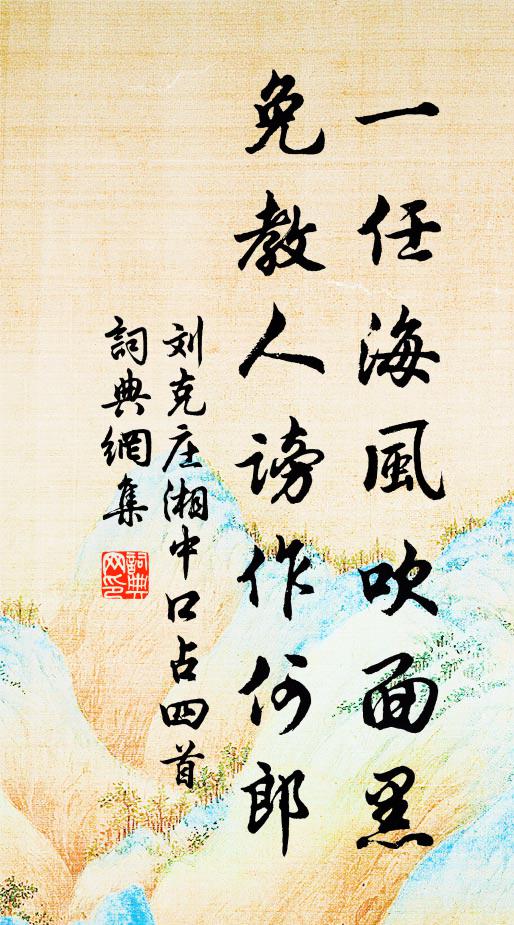 一任海風吹面黑
免教人謗作何郎
刘克庄湘中口占四首
詞典網集
詞典网印